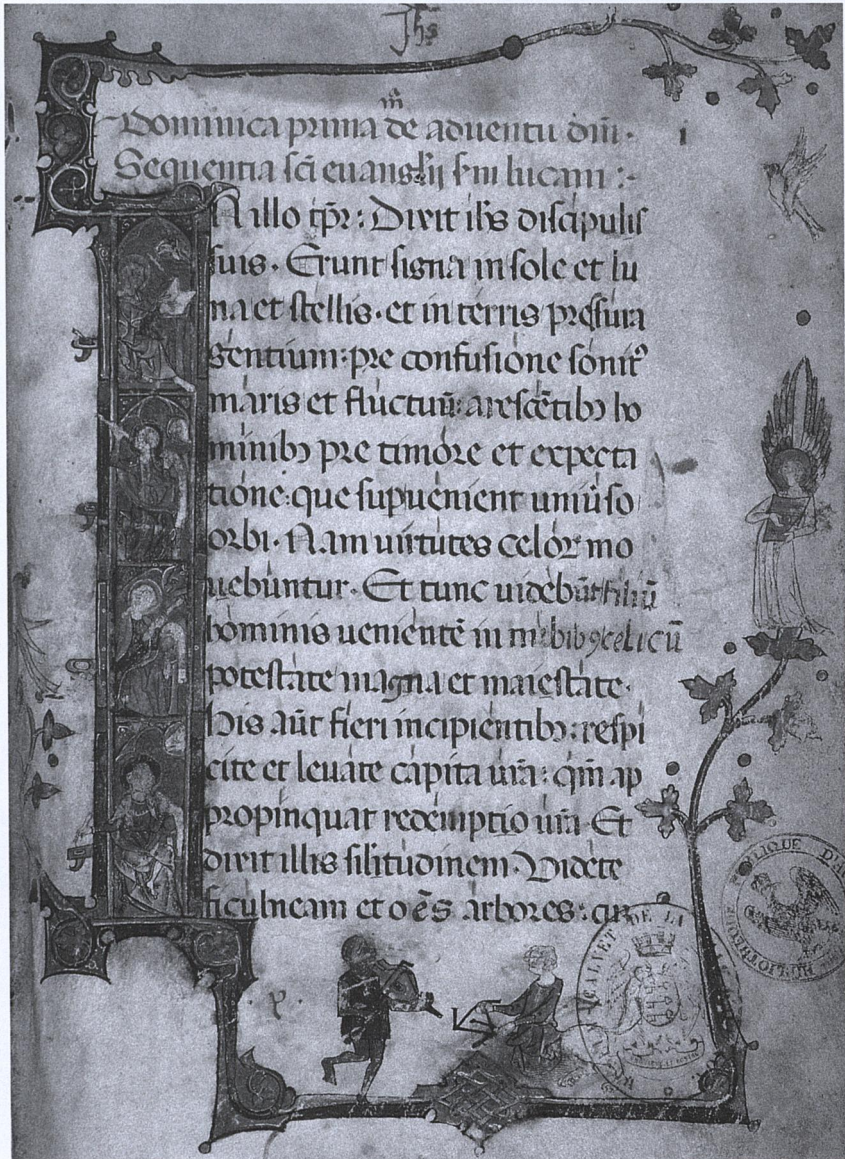 Jhs
Dominica prima de aduentu dni · i
Sequentia sci euanglij scdm lucam :-
IN illo tpr : Dixit ihs discipulis
suis · Erunt signa in sole et lu
na et stellis · et in terris pressura
gentium : pre confusione sonitꝰ
maris et fluctuū : arescētibꝫ ho
minibꝫ pre timore et expecta
tione : que supuenient uniūso
orbi · Nam uirtutes celoꝝ mo
uebuntur · Et tunc uidebūt filiū
hominis uenientē in nubibꝫ celi cū
potestate magna et maiestate ·
His aūt fieri incipientibꝫ : respi
cite et leuate capita ur̄a : qm̄ ap
propinquat redemptio ur̄a · Et
dixit illis silitudinem · Videte
ficulneam et oēs arbores : cu